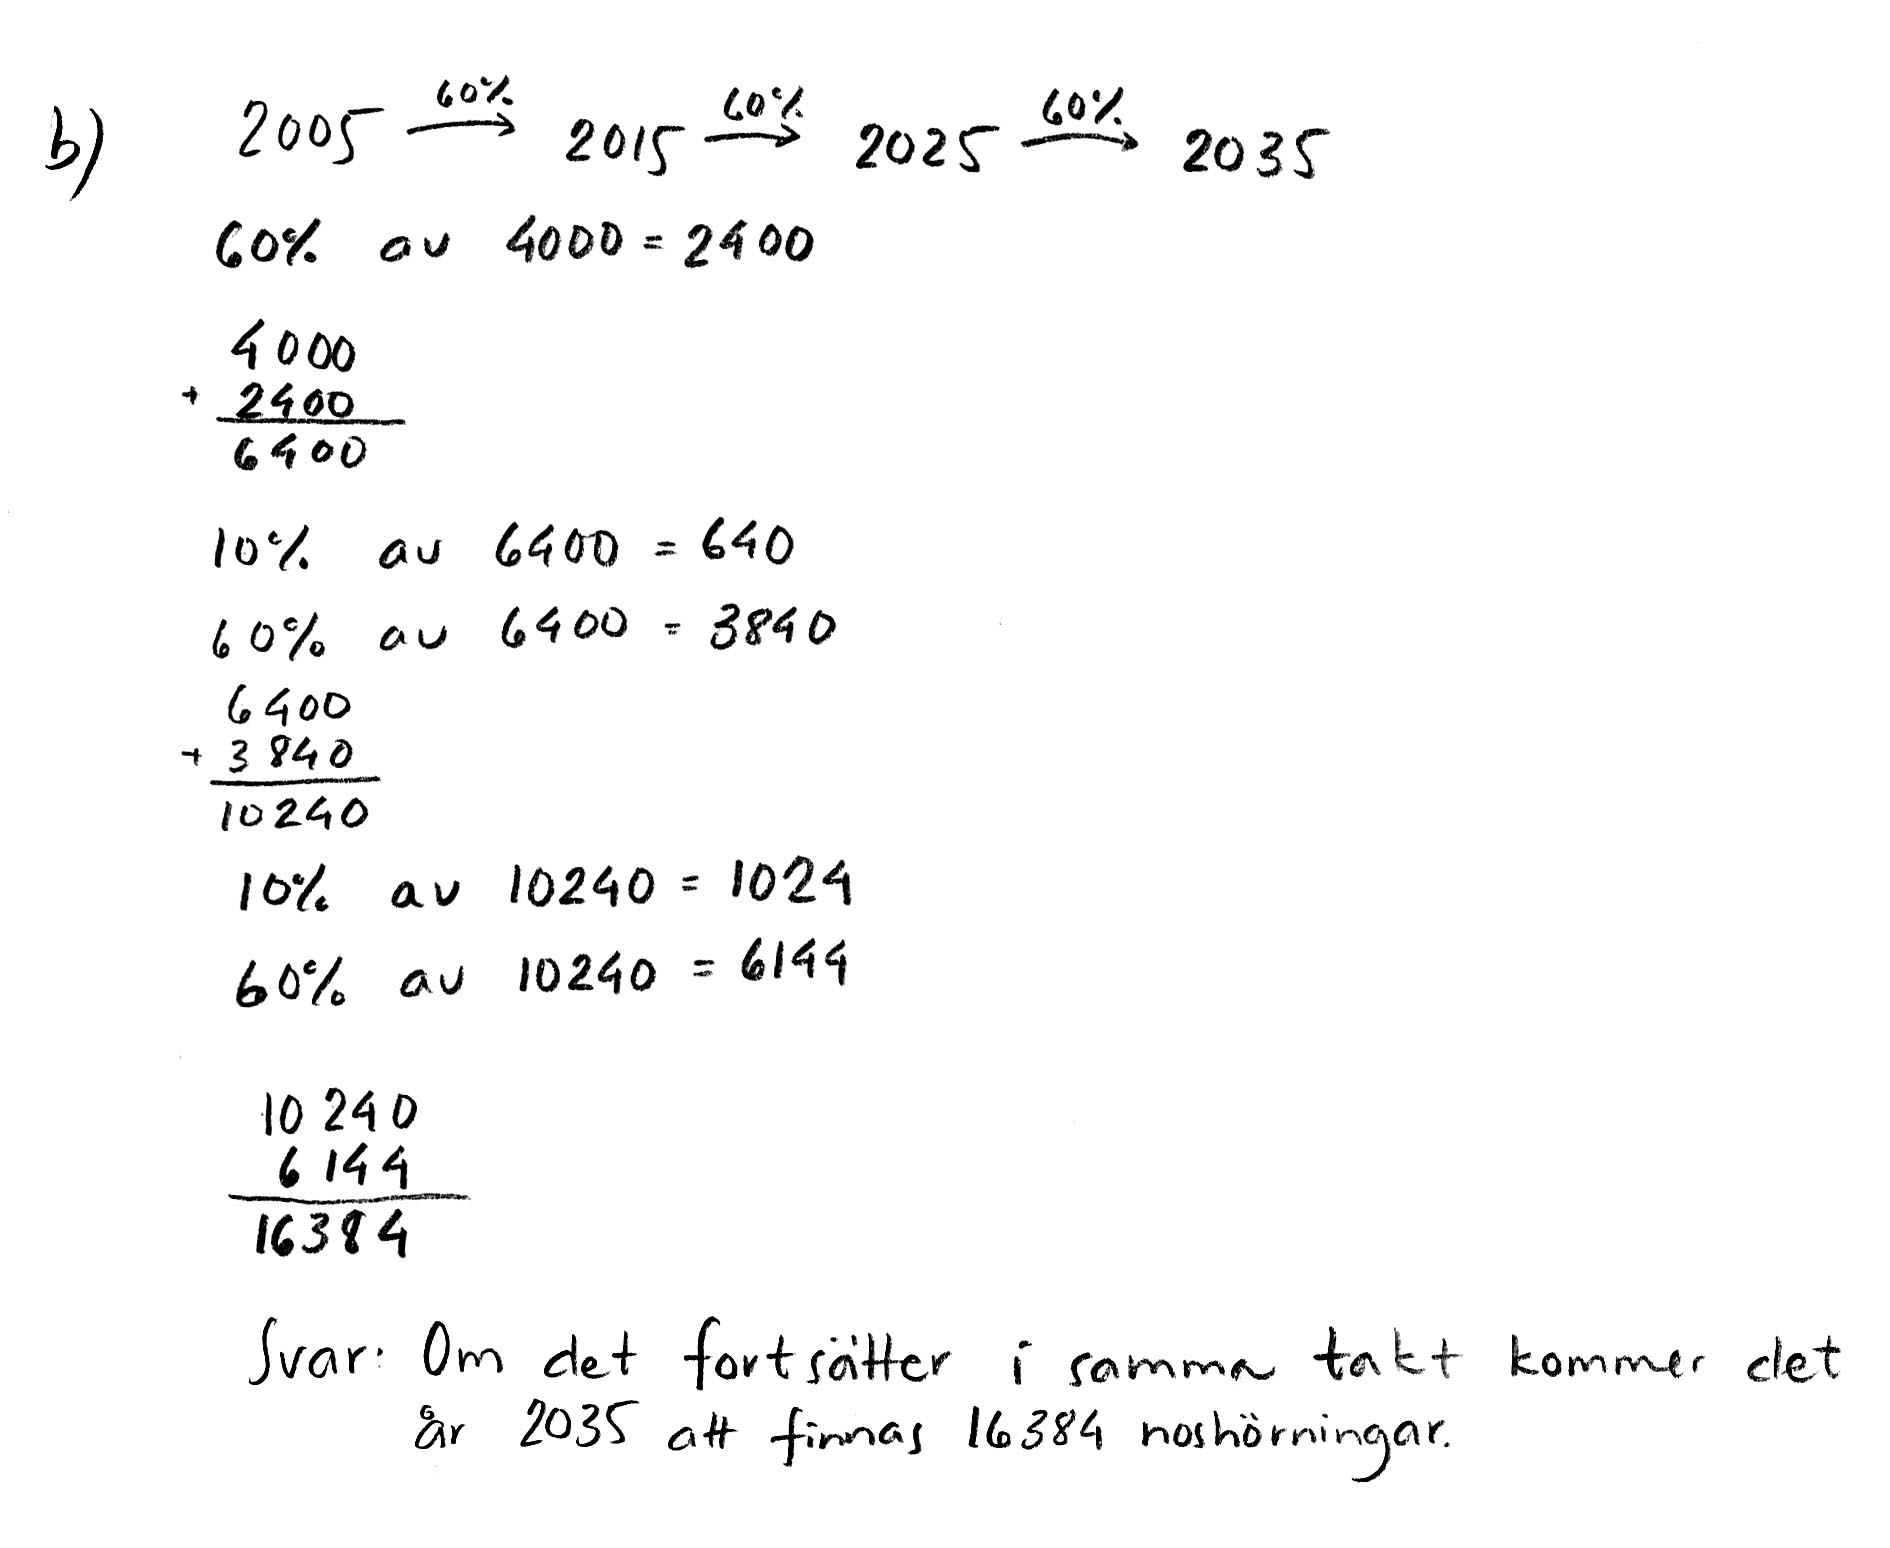 b) 2005 60% → 2015 60% → 2025 60% → 2035
60% av 4000 = 2400
4000
+ 2400
6400
10% av 6400 = 640
60% av 6400 = 3840
6400
+ 3840
10240
10% av 10240 = 1024
60% av 10240 = 6144
10240
6144
16384
Svar: Om det fortsätter i samma takt kommer det
år 2035 att finnas 16384 noshörningar.